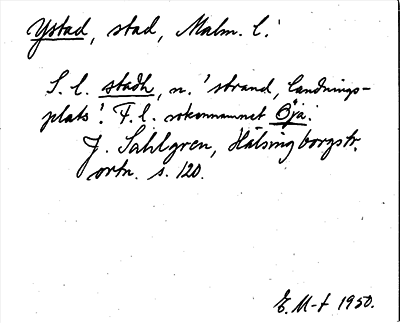 Ystad, stad, Malm. l.
S. l. stadh, n. 'strand, landnings-
plats'. F. l. sockennamnet Öja.
J. Sahlgren, Hälsingborgstr.
ortn. s. 120.
E. M-f 1950.